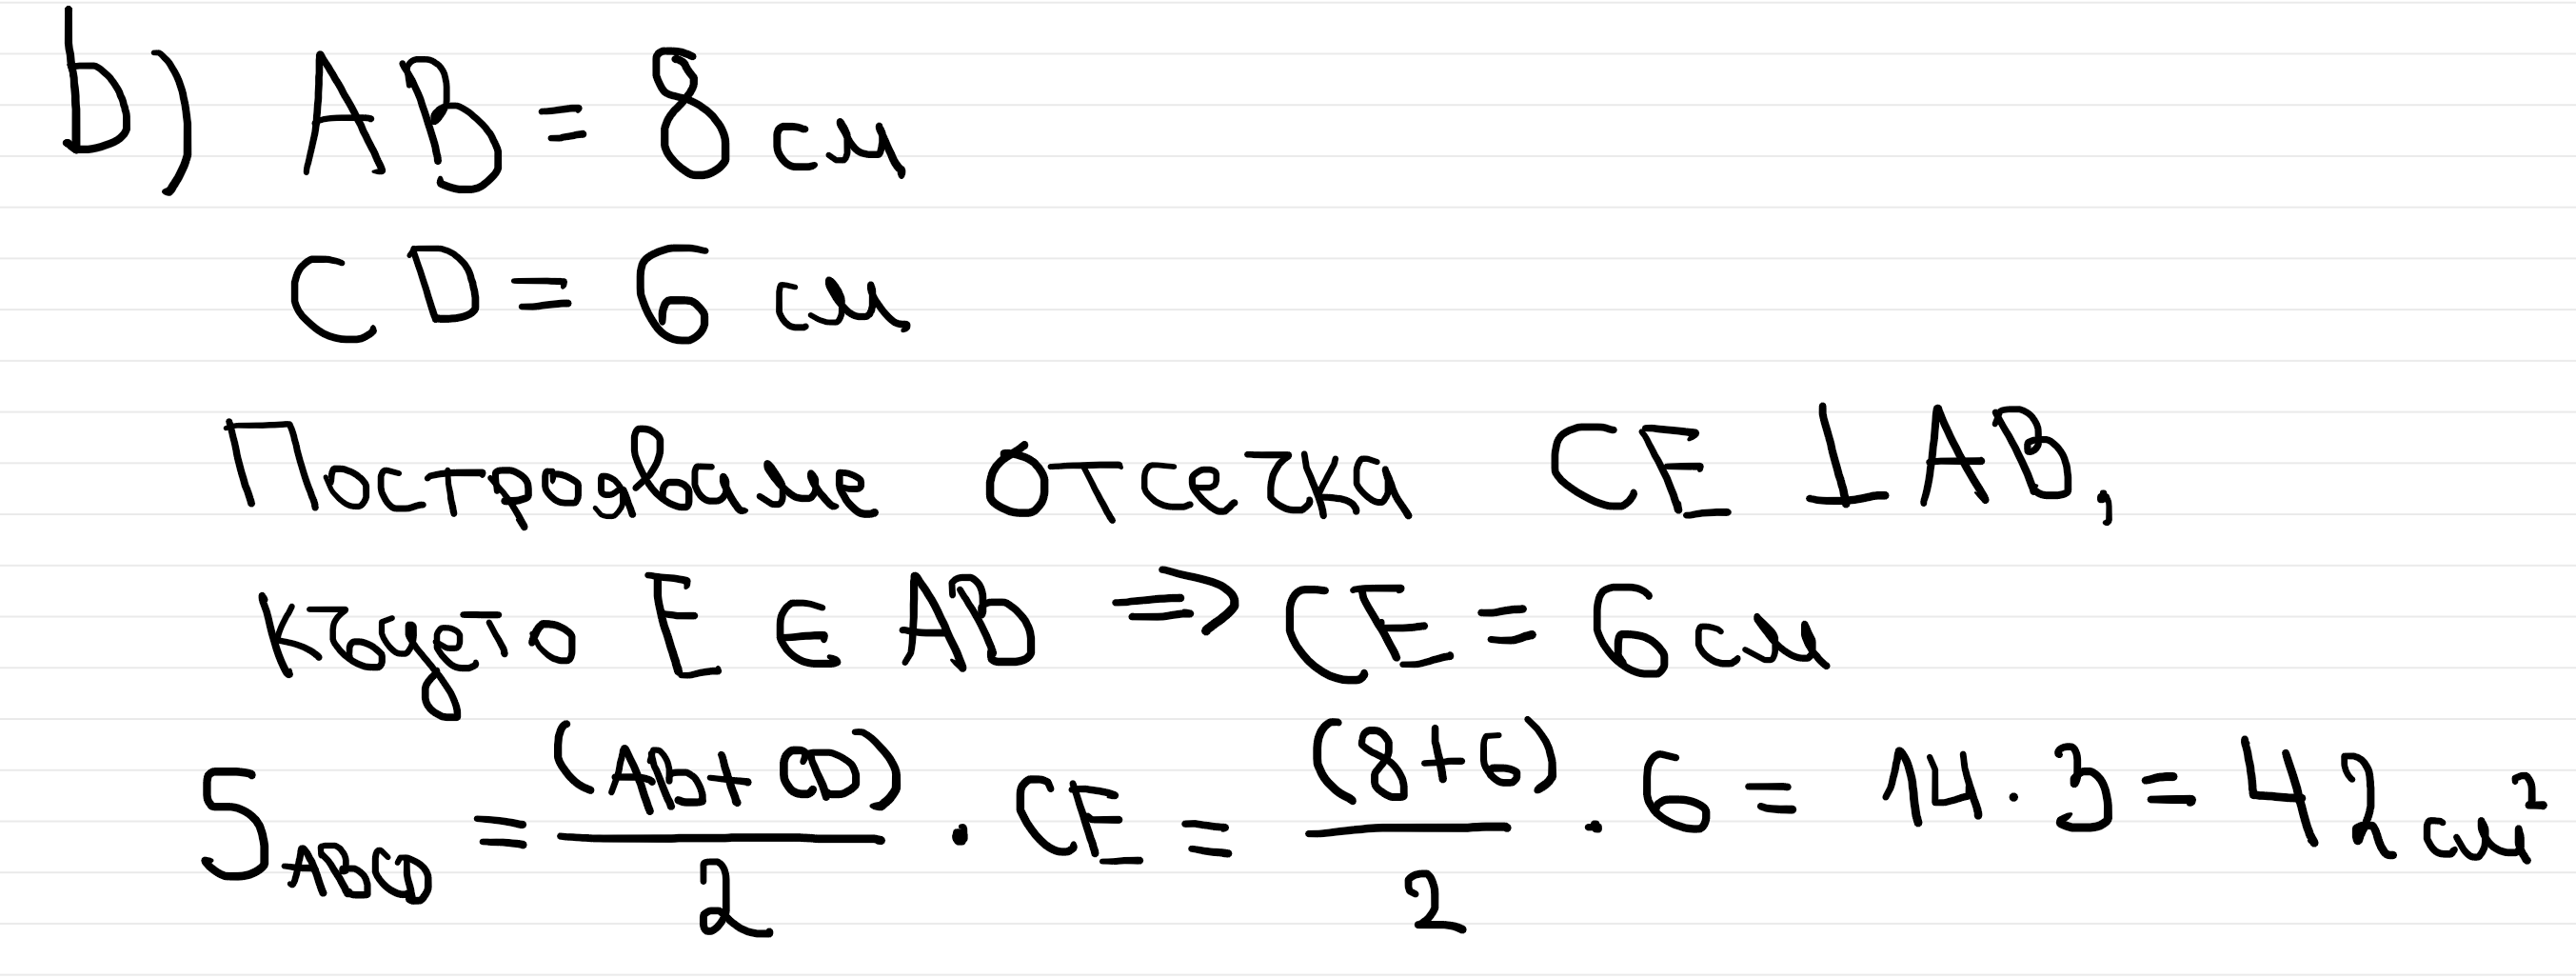 b) AB = 8 см
CD = 6 см
Построяваме отсечка CE ⊥ AB,
където E ∈ AB ⇒ CE = 6 см
S_ABCD = (AB + CD)/2 · CE = (8+6)/2 · 6 = 14 · 3 = 42 см²